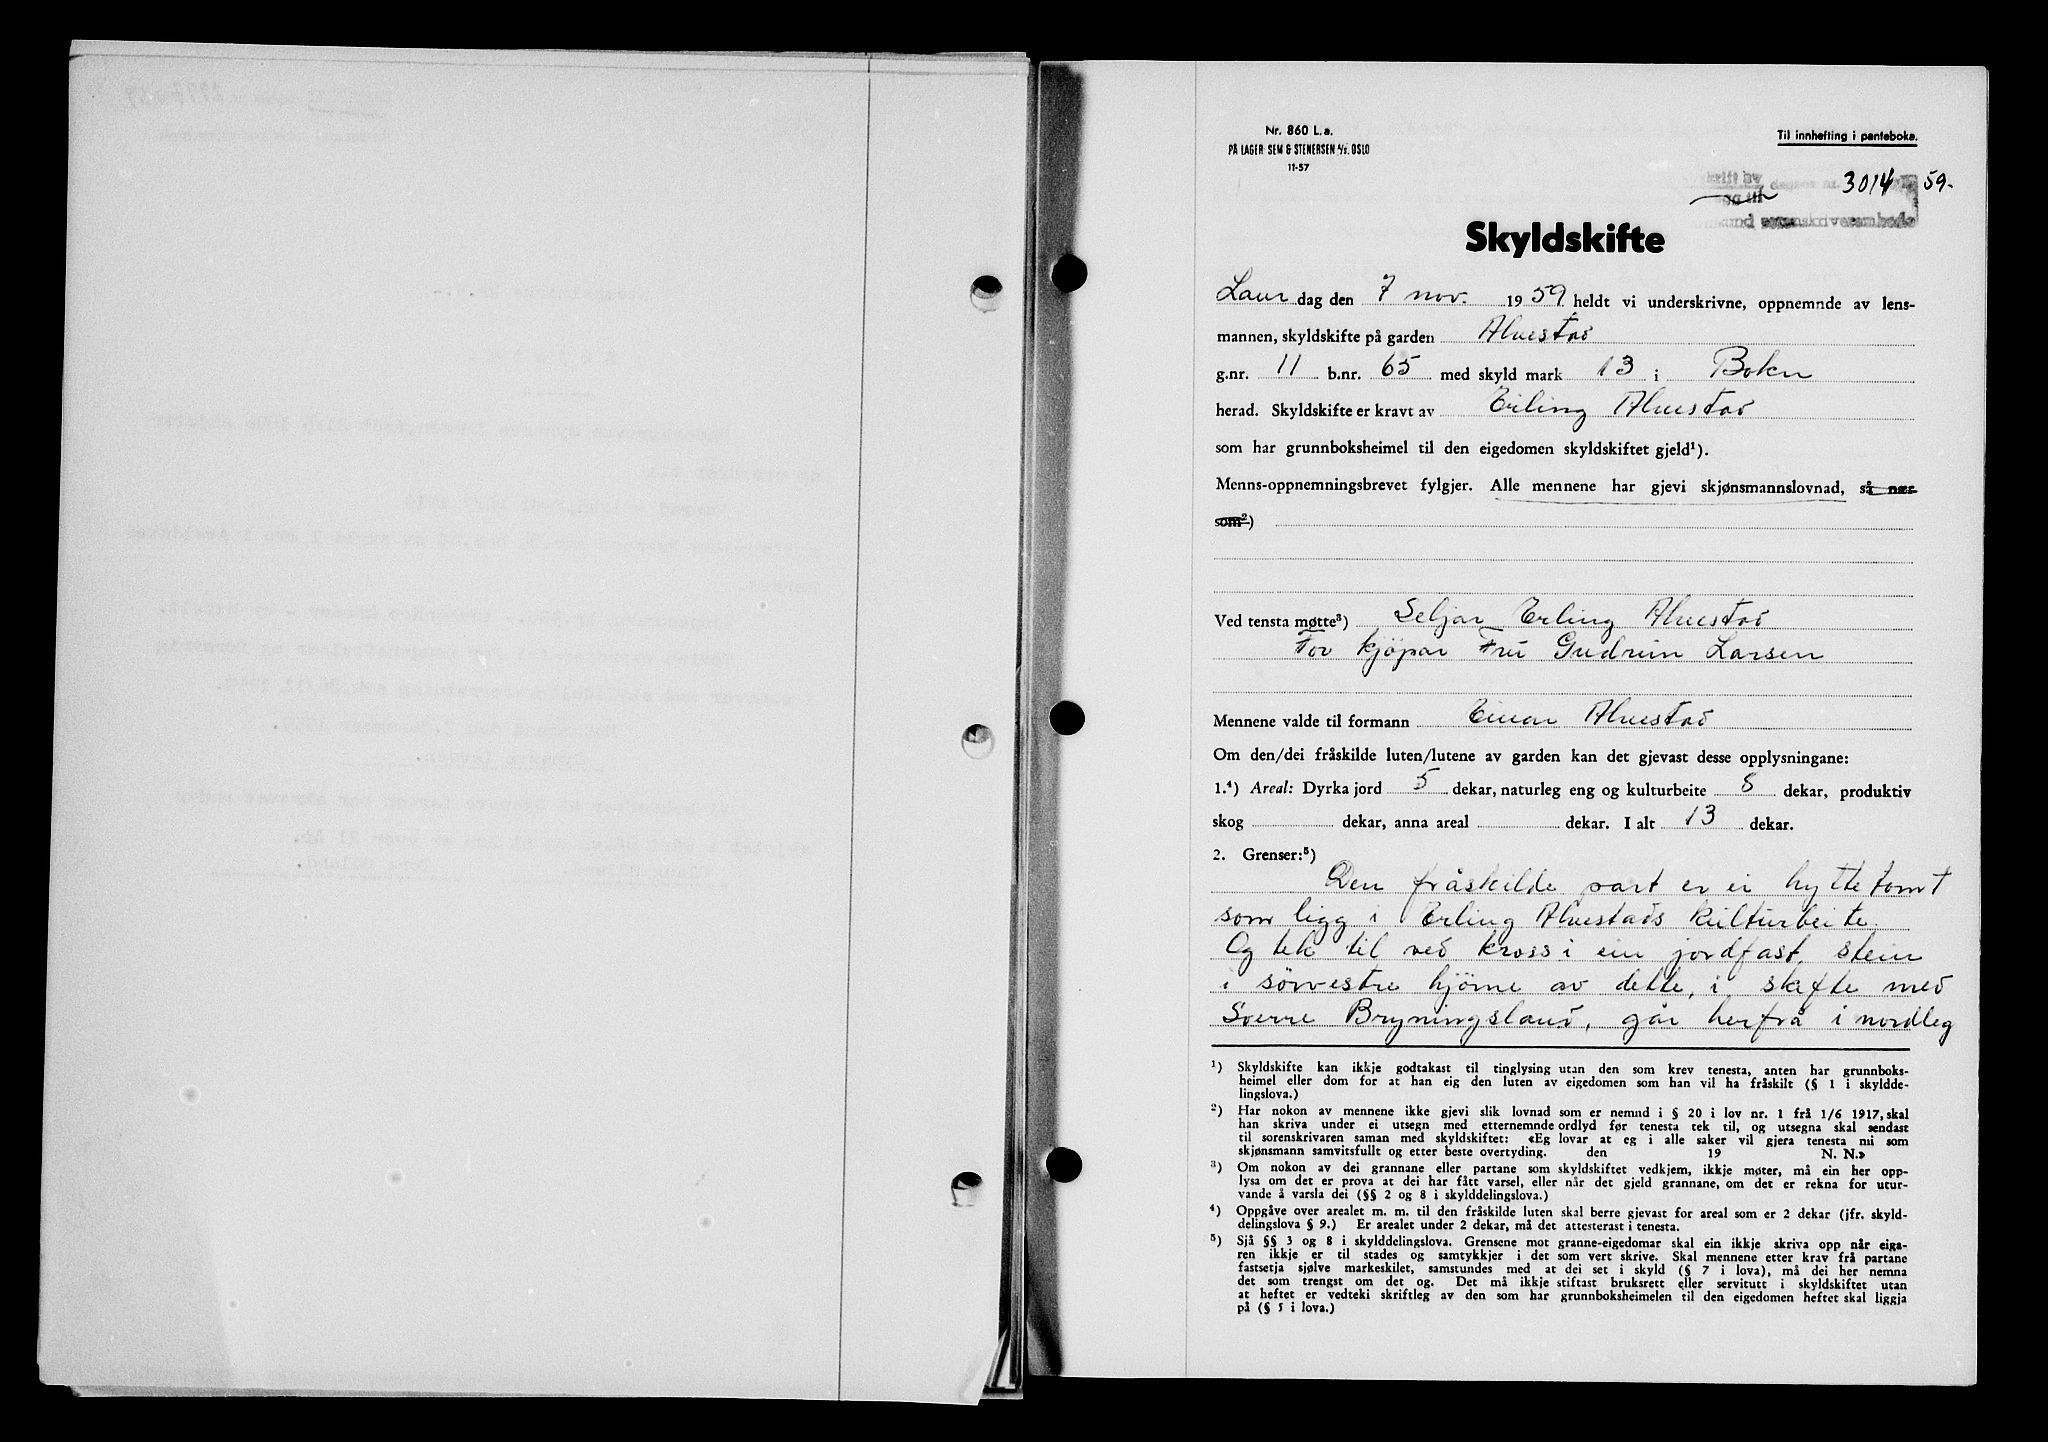 Nr. 860 L.a.
PÅ LAGER SEM & STENERSEN A/S. OSLO
11-57
Til innhefting i panteboka.
3014 59.
Skyldskifte
Laur dag den 7 nov. 1959 heldt vi underskrivne, oppnemnde av lens-
mannen, skyldskifte på garden Alvestad
g.nr. 11 b.nr. 65 med skyld mark 13 i Bokn
herad. Skyldskifte er kravt av Erling Alvestad
som har grunnboksheimel til den eigedomen skyldskiftet gjeld¹).
Menns-oppnemningsbrevet fylgjer. Alle mennene har gjevi skjønsmannslovnad, så nær
som²)
Ved tensta møtte³) Seljar Erling Alvestad
For kjöpar Frü Gudrun Larsen
Mennene valde til formann Einar Alvestad
Om den/dei fråskilde luten/lutene av garden kan det gjevast desse opplysningane:
1.⁴) Areal: Dyrka jord 5 dekar, naturleg eng og kulturbeite 8 dekar, produktiv
skog dekar, anna areal dekar. I alt 13 dekar.
2. Grenser:⁵)
Den fråskilde part er ei hyttetomt
som ligg i Erling Alvestads kulturbeite.
Og tek til ved kross i ein jordfast stein
i sørvestre hjörne av dette, i skifte med
Sverre Bryningsland, går herfrå i nordleg
¹) Skyldskifte kan ikkje godtakast til tinglysing utan den som krev tenesta, anten har grunnboks-
heimel eller dom for at han eig den luten av eigedomen som han vil ha fråskilt (§ 1 i skyldde-
lingslova.)
²) Har nokon av mennene ikke gjevi slik lovnad som er nemnd i § 20 i lov nr. 1 frå 1/6 1917, skal
han skriva under ei utsegn med etternemnde ordlyd før tenesta tek til, og utsegna skal sendast
til sorenskrivaren saman med skyldskiftet: «Eg lovar at eg i alle saker vil gjera tenesta mi som
skjønsmann samvitsfullt og etter beste overtyding. den 19 N. N.»
³) Om nokon av dei grannane eller partane som skyldskiftet vedkjem, ikkje møter, må ein her opp-
lysa om det er prova at dei har fått varsel, eller når det gjeld grannane, om det er rekna for utur-
vande å varsla dei (§§ 2 og 8 i skylddelingslova.)
⁴) Oppgåve over arealet m. m. til den fråskilde luten skal berre gjevast for areal som er 2 dekar (jfr. skyld-
delingslova § 9.) Er arealet under 2 dekar, må det attesterast i tenesta.
⁵) Sjå §§ 3 og 8 i skylddelingslova. Grensene mot granne-eigedomar skal ein ikkje skriva opp når eiga-
ren ikkje er til stades og samtykkjer i det som vert skrive. Skal mennene etter krav frå partane
fastsetja sjølve markeskilet, samstundes med at dei set i skyld (§ 7 i lova), må dei her nemna
det som trengst om det og. Det må ikkje stiftast bruksrett eller servitutt i skyldskiftet utan
at heftet er vedteki skriftleg av den som har grunnboksheimelen til den eigedomen heftet skal liggja
på (§ 5 i lova.)